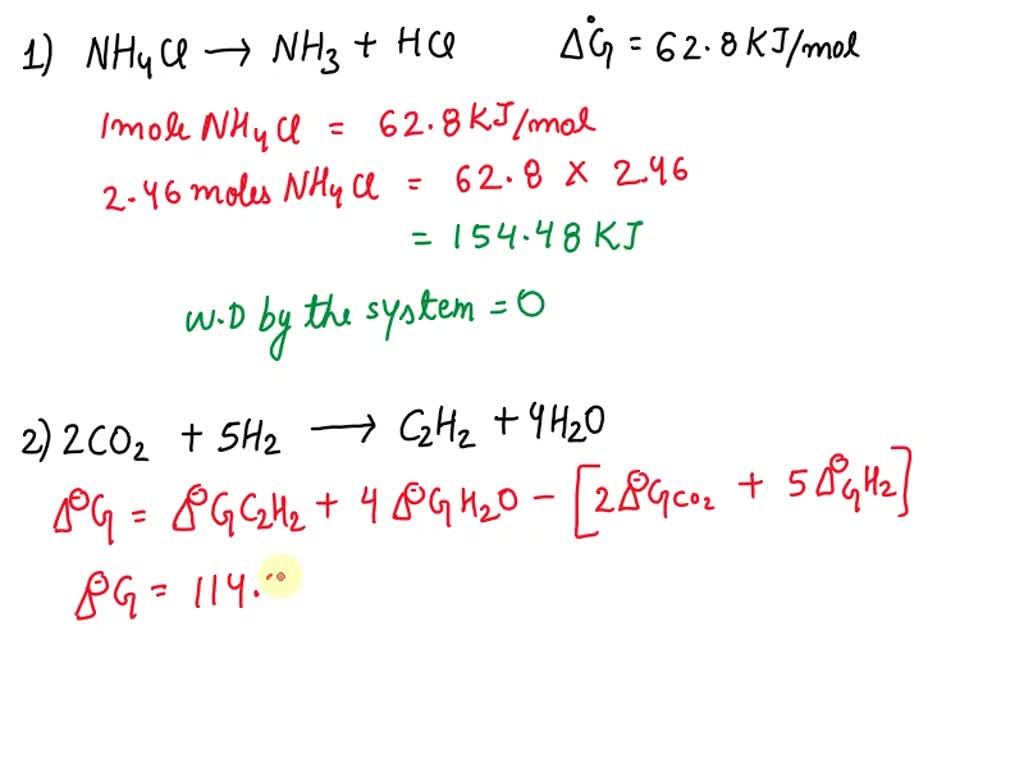 1) NH4Cl → NH3 + HCl ΔG° = 62.8 KJ/mol
1 mole NH4Cl = 62.8 KJ/mol
2.46 moles NH4Cl = 62.8 × 2.46
= 154.48 KJ
W.D by the system = 0
2) 2CO2 + 5H2 → C2H2 + 4H2O
Δ°G = Δ°G C2H2 + 4 Δ°G H2O − [2Δ°G CO2 + 5Δ°G H2]
Δ°G = 114.